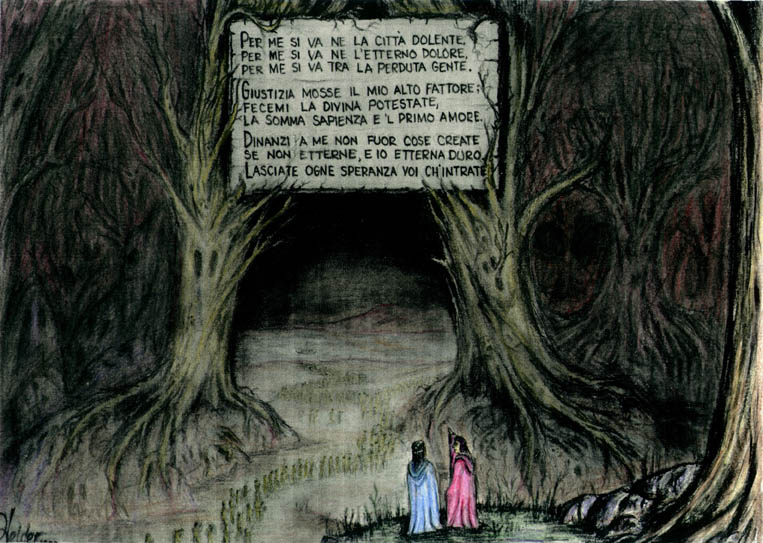 PER ME SI VA NE LA CITTÀ DOLENTE,
PER ME SI VA NE L'ETTERNO DOLORE,
PER ME SI VA TRA LA PERDUTA GENTE.
GIUSTIZIA MOSSE IL MIO ALTO FATTORE;
FECEMI LA DIVINA POTESTATE,
LA SOMMA SAPIENZA E 'L PRIMO AMORE.
DINANZI A ME NON FUOR COSE CREATE
SE NON ETTERNE, E IO ETTERNA DURO.
LASCIATE OGNE SPERANZA VOI CH'INTRATE